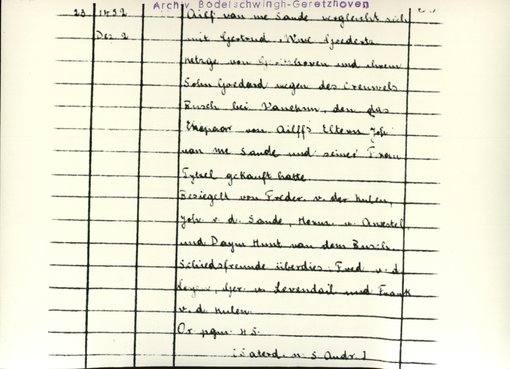 Archiv Bodelschwingh-Geretzhoven
23 1432 Ailf van me Sande vergleicht sich
Dez. 2 mit Gertrud, Wwe Goederts
von und ihrem
Sohn Goedard wegen des
Busch bei dem das
Ehepaar von Ailffs Eltern Joh.
van me Sande und seiner Frau
gekauft hatte.
Besiegelt von Freder. v. der Hulen,
Joh. v. d. Sande, Herm. v. Anxstel,
und Daym Hunt van dem Busch.
Schiedsfreunde überdies Fred. v. d.
Ger. v. Levendail und Frank
v. d. Hulen.
Or. pgm. 4 S.